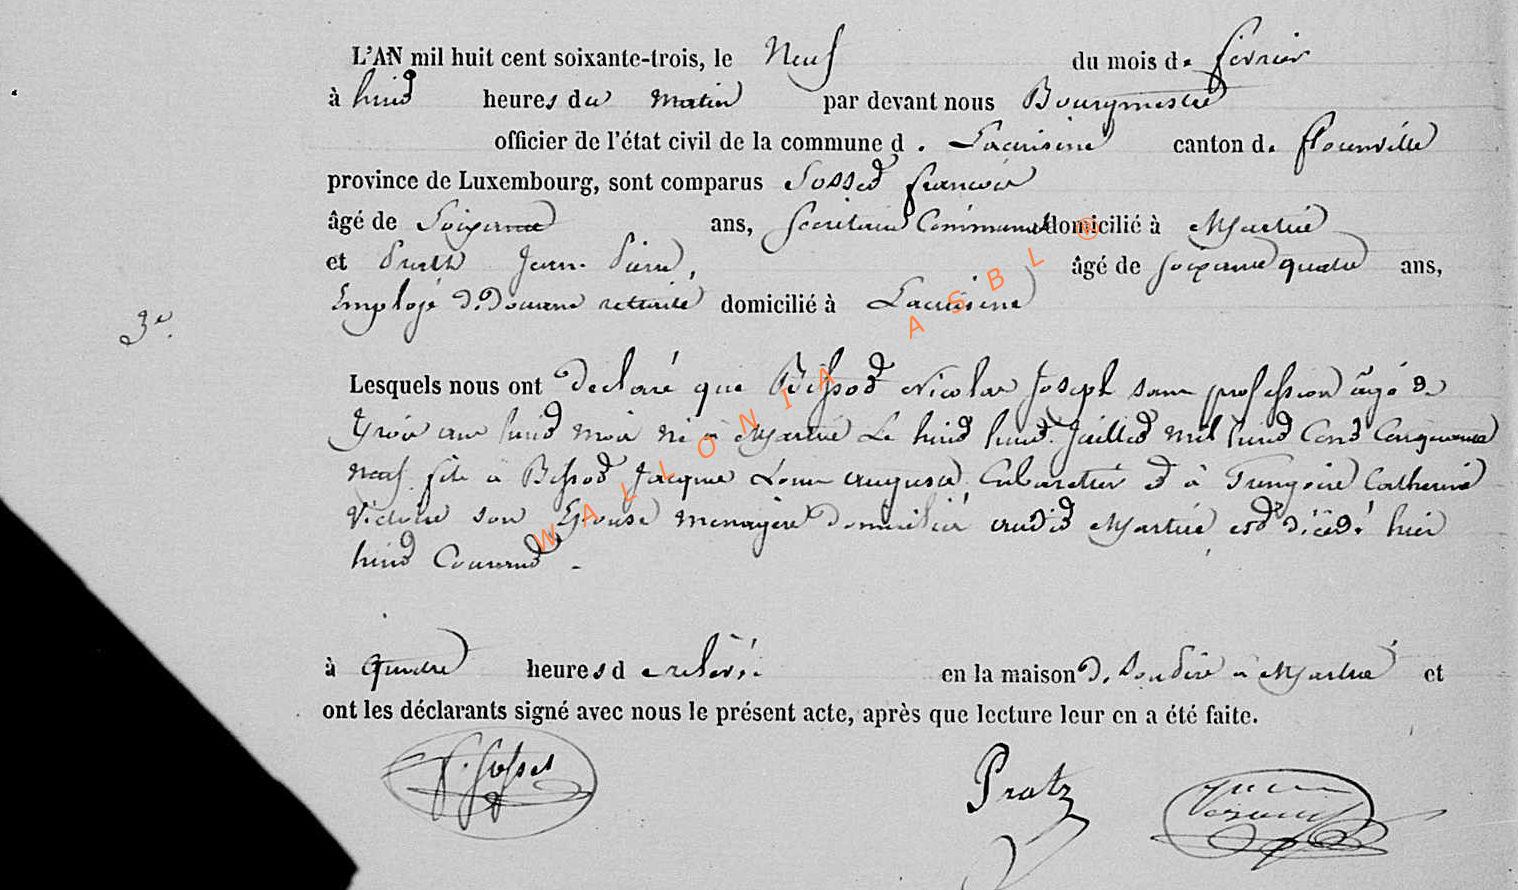 L'AN mil huit cent soixante-trois, le Neuf du mois de février
à huit heures du matin par devant nous Bourgmestre
officier de l'état civil de la commune d. Lacuisine canton de florenville
province de Luxembourg, sont comparus Sosset françois
âgé de Soixante ans, Secrétaire Communal domicilié à Martué
et Jean Pierre, âgé de soixante quatre ans,
Employé d. Douane retraité domicilié à Lacuisine
3e.
Lesquels nous ont declaré que Bissot Nicolas Joseph sans profession âgé de
Trois ans huit mois né à Martué le huit Juillet mil huit Cent Cinquante
neuf fils à Bissot Jacques Louis Auguste Cabaretier et à Catherine
Victoire son Epouse menagère domiciliés audit Martué est décédé hier
huit Courant
à quatre heures d relevée en la maison d. son Père à Martué et
ont les déclarants signé avec nous le présent acte, après que lecture leur en a été faite.
f. Sosset Pratz
WALLONIA ASBL ®